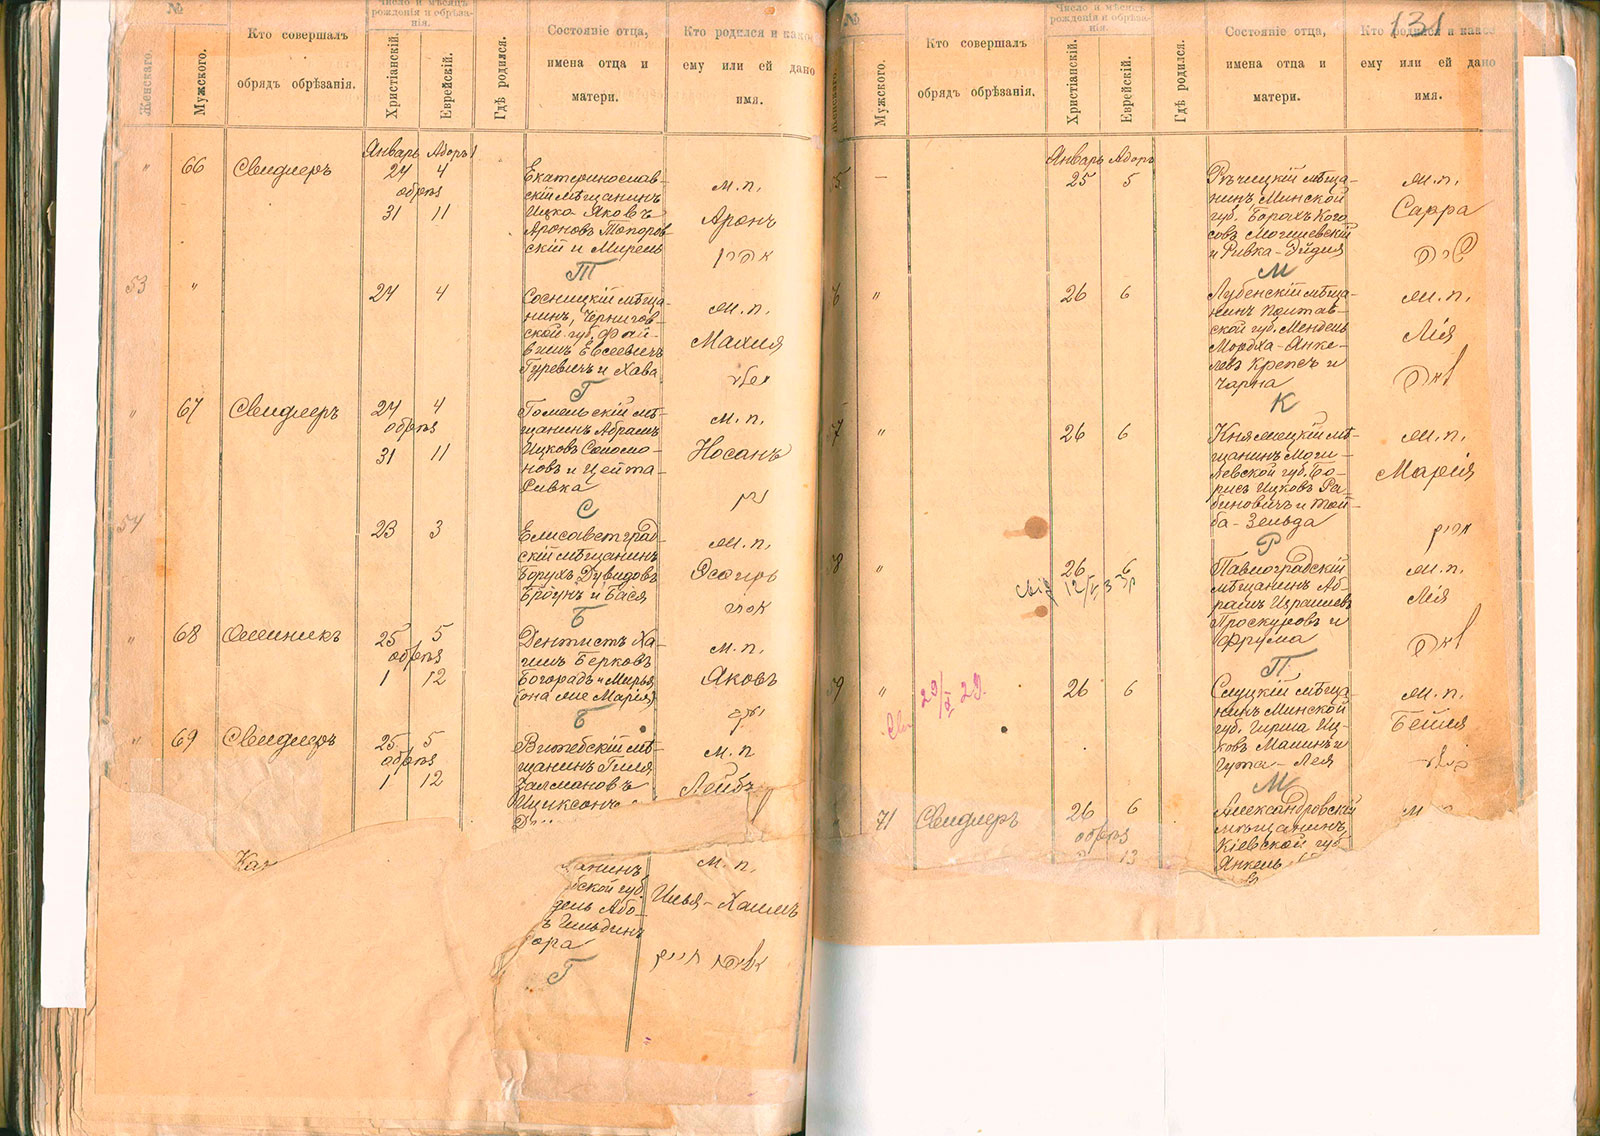 №
Женскаго.
Мужского.
Кто совершалъ
обрядъ обрѣзанія.
Число и мѣсяцъ
рожденія и обрѣза-
нія.
Христіанскій.
Еврейскій.
Гдѣ родился.
Состояніе отца,
имена отца и
матери.
Кто родился и како
ему или ей дано
имя.
" 66 Свидлеръ
Январь Адоръ 1
24 4
обрѣз
31 11
Екатеринослав-
скій мѣщанинъ
Ицко Яковъ
Ароновъ Топоров
скій и Мирель
Т
м.п.
Аронъ
53 "
24 4
Сосницкій мѣща-
нинъ, Чернигов-
ской губ. Фай-
вишъ Евсеевичъ
Гуревичъ и Хава
Г
м.п.
67 Свидлеръ
24 4
обрѣз
31 11
Гомельскій мѣ-
щанинъ Абрамъ
Ицковъ Соломо-
новъ и Цейта-
Ривка
С
м.п.
Носанъ
נתן
54
23 3
Елисаветград
скій мѣщанинъ
Борухъ Дувидовъ
Броунъ и Бася
Б
м.п.
Эсѳирь
אסתר
" 68
25 5
обрѣз
1 12
Дентистъ Ха-
имъ Берковъ
Богорадъ и Мирья
(она же Марія)
Б
м.п.
Яковъ
יעקב
" 69 Свидлеръ
25 5
обрѣз
1 12
Витебскій мѣ-
щанинъ Гилл
Залмановъ
Ициксонъ
м.п
Лейбъ
Каг
щанинъ
ской губ.
дель Або-
ъ Гильдинъ
ора
Г
м.п.
Илья-Хаимъ
№
131
Женскаго.
Мужского.
Кто совершалъ
обрядъ обрѣзанія.
Число и мѣсяцъ
рожденія и обрѣза-
нія.
Христіанскій.
Еврейскій.
Гдѣ родился.
Состояніе отца,
имена отца и
матери.
Кто родился и какое
ему или ей дано
имя.
5 —
Январь Адоръ
25 5
Рѣчицкій мѣща-
нинъ Минской
губ. Борахъ Кого
совъ Могилевскій
и Ривка-Эйдля
М
м.п.
Сарра
שרה
6 "
26 6
Лубенскій мѣща-
нинъ Полтав-
ской губ. Мендель
Мордха-Анке-
левъ Крепсъ и
Чарна
К
м.п.
Лія
לאה
7 "
26 6
щанинъ Моги-
левской губ. Бо-
рисъ Ицковъ Ра-
биновичъ и Той-
ба-Зельда
Р
м.п.
Марія
מרים
58 "
26 6
Павлоградскій
мѣщанинъ Аб-
рамъ Израилевъ
Проскуровъ и
Фрума
П
м.п.
Лія
לאה
59 "
29/X 29.
26 6
Слуцкій мѣща
нинъ Минской
губ. Гирша Иц-
ковъ Малинъ и
Гута-Лея
М
м.п.
Бейля
71 Свидлеръ
26 6
обрѣз
13
Александровскій
мѣщанинъ,
Кіевской губ
Янкель
м